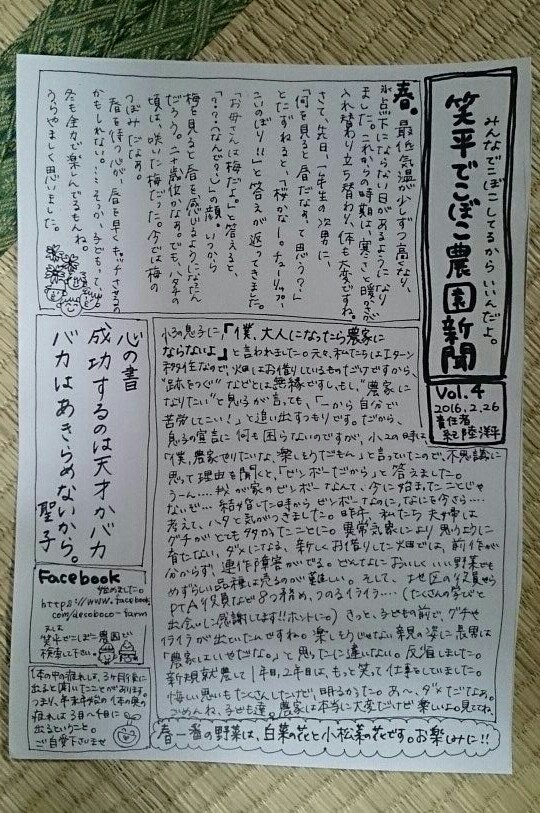 みんなでこぼこしてるからいいんだよ。
笑平でこぼこ農園新聞
Vol.4
2016.2.26
責任者
紀陸洋平
春。最低気温が少しずつ高くなり、
氷点下にならない日があるようになり
ました。これからの時期は、寒さと暖かさが
入れ替わり立ち替わり、体も大変ですね。
さて、先日、一年生の次男に、
「何を見ると春だなぁって思う?」
とたずねると、「桜かなー。チューリップー
こいのぼり!!」と答えが返ってきました。
「お母さんは梅だよ。」と答えると、
「???(なんで?)」の顔。いつから
梅を見ると春を感じるようになったん
だろう。二十歳位かなぁ。でも、ハタチの
頃は、咲いた梅だった。今では梅の
つぼみだなぁ。
春を待つ心が、春を早くキャッチさせるの
かもしれない。…そっか、子どもって、
冬も全力で楽しんでるもんね。
うらやましく思いました。
小3の息子に、「僕、大人になったら農家に
ならないよ」と言われました。元々、私たちはIターン
移住なので、畑はお借りしているものだけですから、
"跡をつぐ"などとは無縁ですし、もし、"農家に
なりたい"と息子が言っても、「一から自分で
苦労してこい!」と追い出すつもりです。だから、
息子の宣言に何も困らないのですが、小2の時は、
「僕、農家やりたいな、楽しそうだもん」と言っていたので、不思議に
思って理由を聞くと、「ビンボーだから」と答えました。
うーん…我が家のビンボーなんて、今に始まったことじゃ
ないぜ…結婚した時からビンボーなのに、なにを今さら…
考えて、ハタと気がつきました。昨年、私たち夫婦は
グチがとても多かったことに。異常気象により思うように
育たない、ダメになる、新しくお借りした畑では、前作が
分からず、連作障害がでる。どんなにおいしくいい野菜でも
めずらしい品種は売るのが難しい。そして、地区の役員やら
PTA役員など8つ務め、つのるイライラ…(たくさんの学びと
出会いに感謝してます!!ホントに。) きっと、子どもの前で、グチや
イライラが出ていたんですね。楽しそうじゃない親の姿に長男は
「農家はいやだな。」と思ったに違いない。反省しました。
新規就農して1年目、2年目は、もっと笑って仕事をしていました。
悔しい思いもたくさんしたけど、明るかった。あ〜、ダメだなぁ。
ごめんね、子ども達。農家は本当に大変だけど楽しいよ。見てね。
春一番の野菜は、白菜の花と小松菜の花です。お楽しみに!!
心の書
成功するのは天才かバカ
バカはあきらめないから。
聖子
Facebook
始めました。
https://www.facebook.
com/decoboco-farm
又は
笑平でこぼこ農園で
検索して下さい。
体の中の疲れは、3ヶ月後に
出ると聞いたことがあります。
つまり、年末年始の体の奥の
疲れは3月〜4月に
出るということ。
ご自愛下さいませ